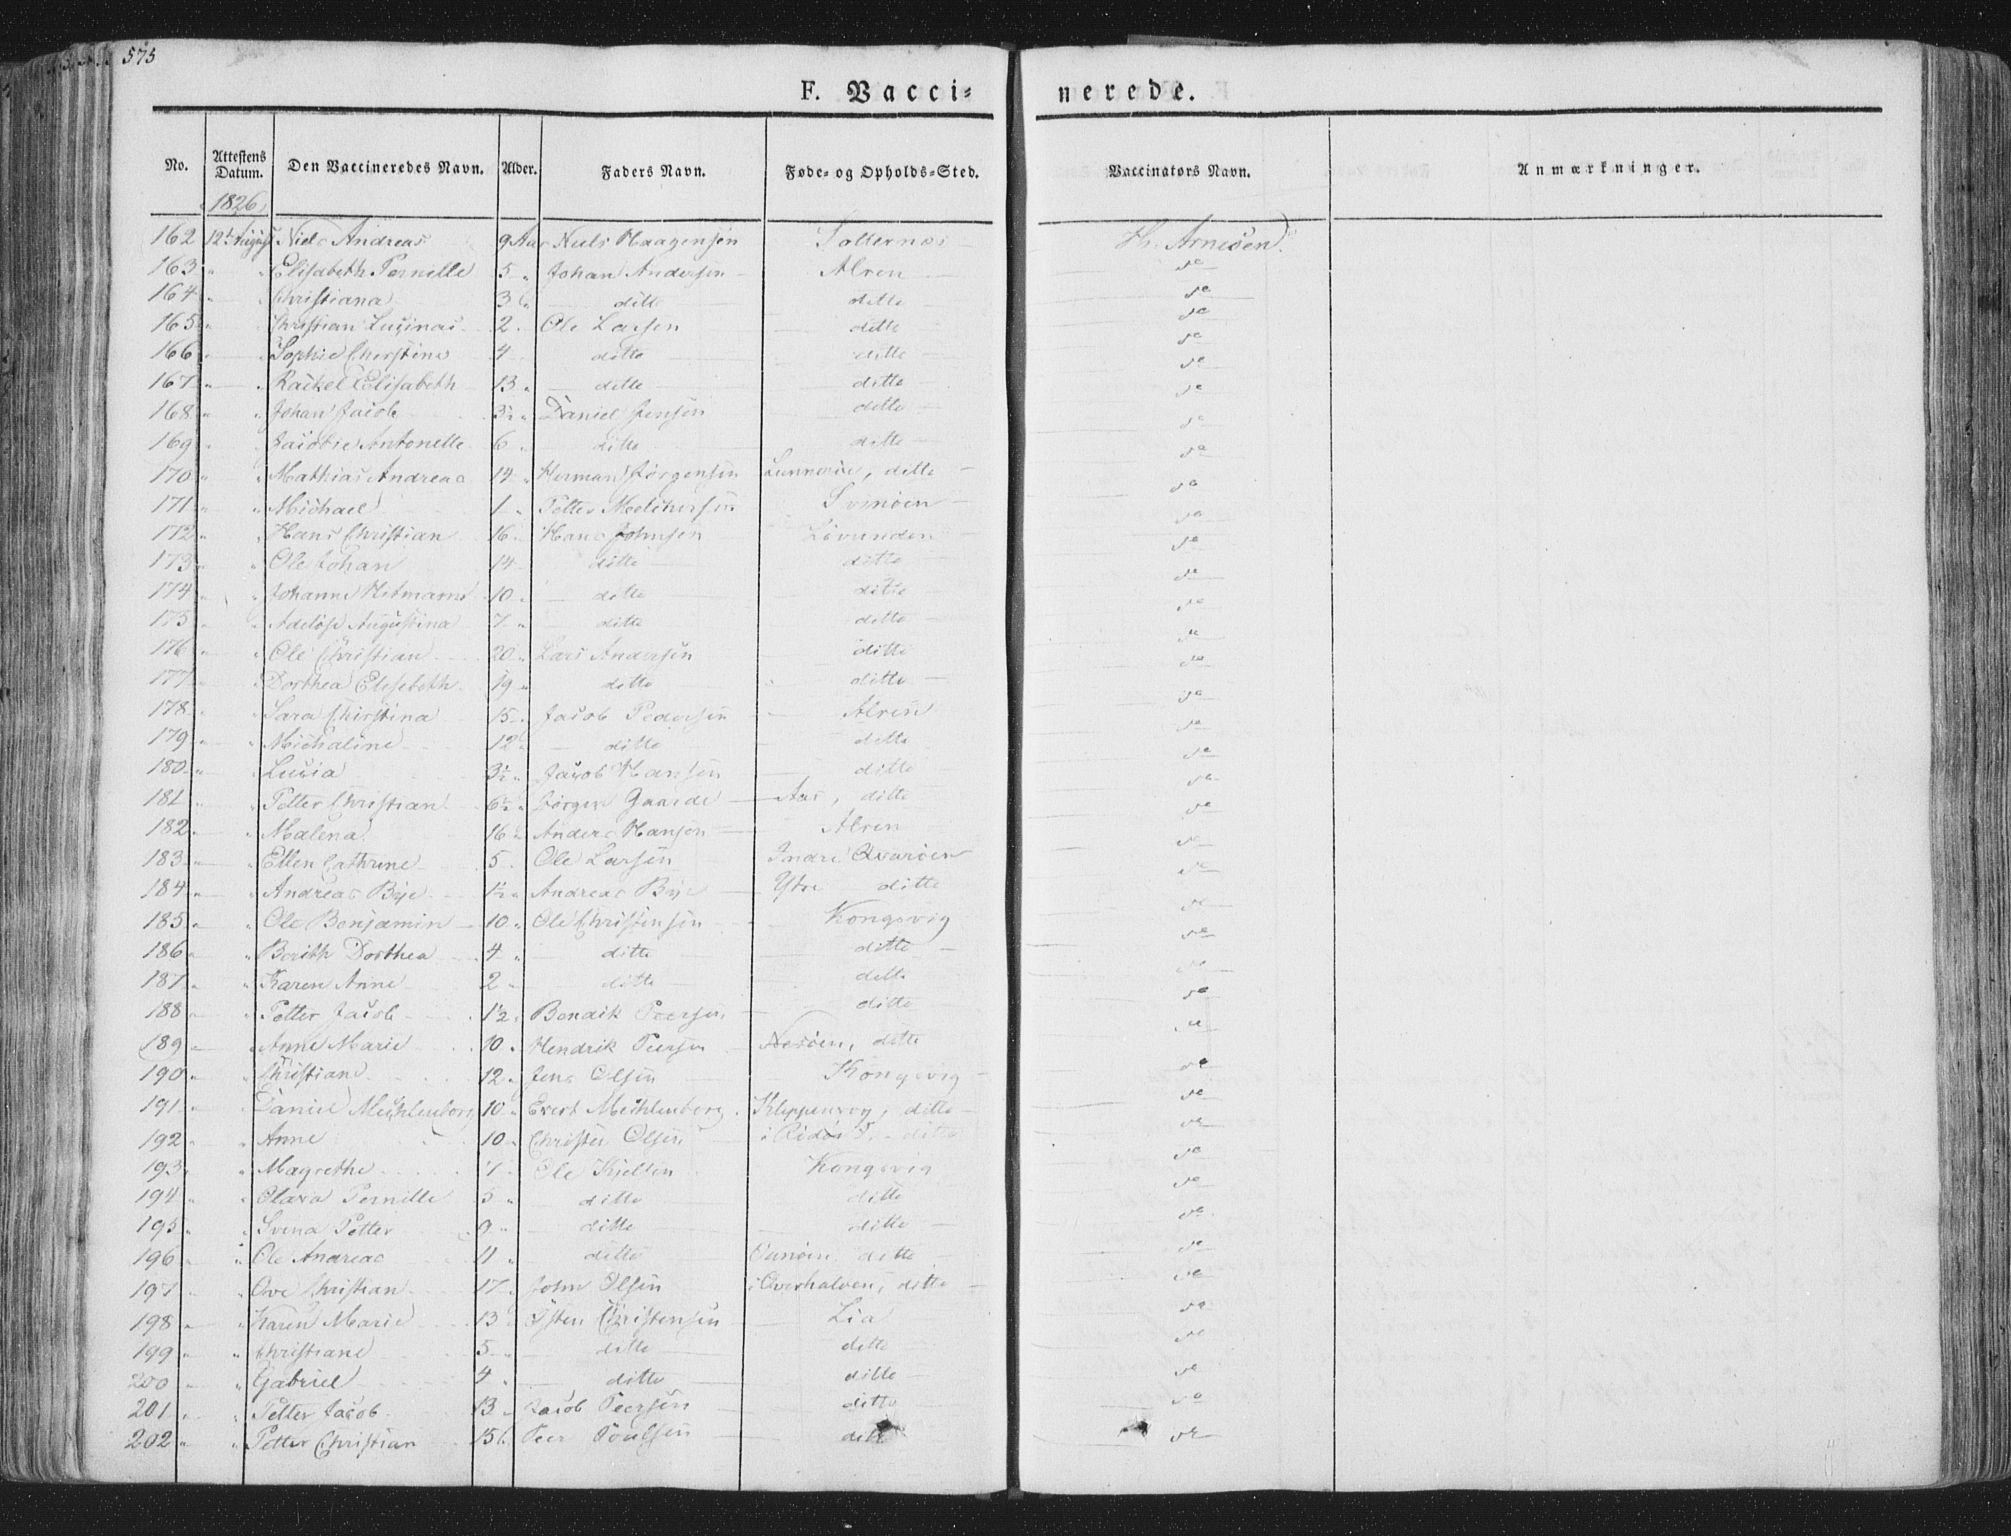 575
F. Vacci= nerede.
No. Attestens Datum. Den Vaccineredes Navn. Alder. Faders Navn. Føde= og Opholds=Sted. Vaccinators Navn. Anmærkninger.
1826
162 12te August Niels Andreas 9 Aar Niels Haagensen H. Arnesen
163 " " Elisabeth Pernille 5 " Johan Andersen Alren de
164 " " Christiana 3 " ditto ditto de
165 " " Christian 2 " Ole Larsen ditto de
166 " " Sophie Cherstine 4 ditto ditto de
167 " " Rachel Elisabeth 13 " ditto ditto de
168 " " Johan Jacob 3½ " Daniel Jensen ditto de
169 " " Jacobie Antonette 6 " ditto ditto de
170 " " Mathias Andreas 14 " Herman Jørgensen ditto de
171 " " Michael 1 " Petter Melchersen Svinøen de
172 " " Hans Christian 16 " Hans Johnsen Lovunden de
173 " " Ole Johan 14 " ditto ditto de
174 " " Johanne 10 " ditto ditto de
175 " " Augustina 7 " ditto ditto de
176 " " Ole Christian 20 " Lars Andersen ditto de
177 " " Dorthea Elisebeth 19 " ditto ditto de
178 " " Sara Chirstina 15 " Jacob Pedersen Alren de
179 " " Michaline 12 " ditto ditto de
180 " " Lucia 3½ " Jacob Hansen ditto de
181 " " Petter Christian 6½ " Jørgen Gaarde Aas, ditto de
182 " " Malena 16 " Anders Hansen Alren de
183 " " Ellen Cathrine 5 " Ole Larsen Indre Qvarøen de
184 " " Andreas Bye 1½ " Andreas Bye Ytre ditto de
185 " " Ole Benjamin 10 " Ole Christensen Kongsvig de
186 " " Berith Dorthea 4 " ditto ditto de
187 " " Karen Anne 2 " ditto ditto de
188 " " Petter Jacob 1½ " Bendik Peersen ditto de
189 " " Anne Marie 10 " Hendrik Peersen Nesøen, ditto de
190 " " Christiane 12 " Jens Olsen Kongsvig de
191 " " Daniel Mechlenborg 10 " Evert Mechlenborg ditto de
192 " " Anne 10 " Christen Olsen ditto de
193 " " Magrethe 7 " Ole Kjelsen Kongsvig de
194 " " Olava Pernille 5 " ditto ditto de
195 " " Svena Petter 9 " ditto ditto de
196 " " Ole Andreas 11 " ditto ditto de
197 " " Ove Christian 17 " John Olsen i Overhalven, ditto de
198 " " Karen Marie 13 " Østen Christensen Lia de
199 " " Christiane 5 " ditto ditto de
200 " " Gabriel 4 " ditto ditto de
201 " " Petter Jacob 13 " Jacob Peersen ditto de
202 " " Petter Christian 15 Peer Poulsen ditto de